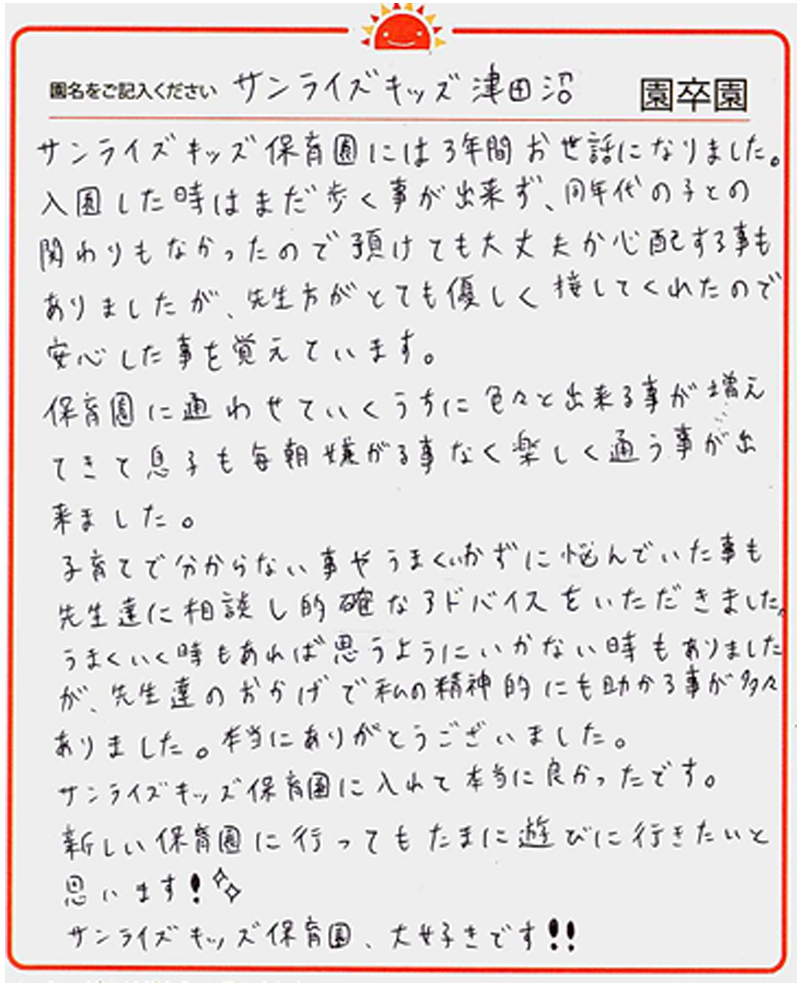 園名をご記入ください サンライズキッズ津田沼 園卒園
サンライズキッズ保育園には3年間お世話になりました。
入園した時はまだ歩く事が出来ず、同年代の子との
関わりもなかったので預けても大丈夫か心配する事も
ありましたが、先生方がとても優しく接してくれたので
安心した事を覚えています。
保育園に通わせていくうちに色々と出来る事が増え
てきて息子も毎朝嫌がる事なく楽しく通う事が出
来ました。
子育てで分からない事やうまくいかずに悩んでいた事も
先生達に相談し的確なアドバイスをいただきました。
うまくいく時もあれば思うようにいかない時もありました
が、先生達のおかげで私の精神的にも助かる事が多々
ありました。本当にありがとうございました。
サンライズキッズ保育園に入れて本当に良かったです。
新しい保育園に行ってもたまに遊びに行きたいと
思います!
サンライズキッズ保育園、大好きです!!